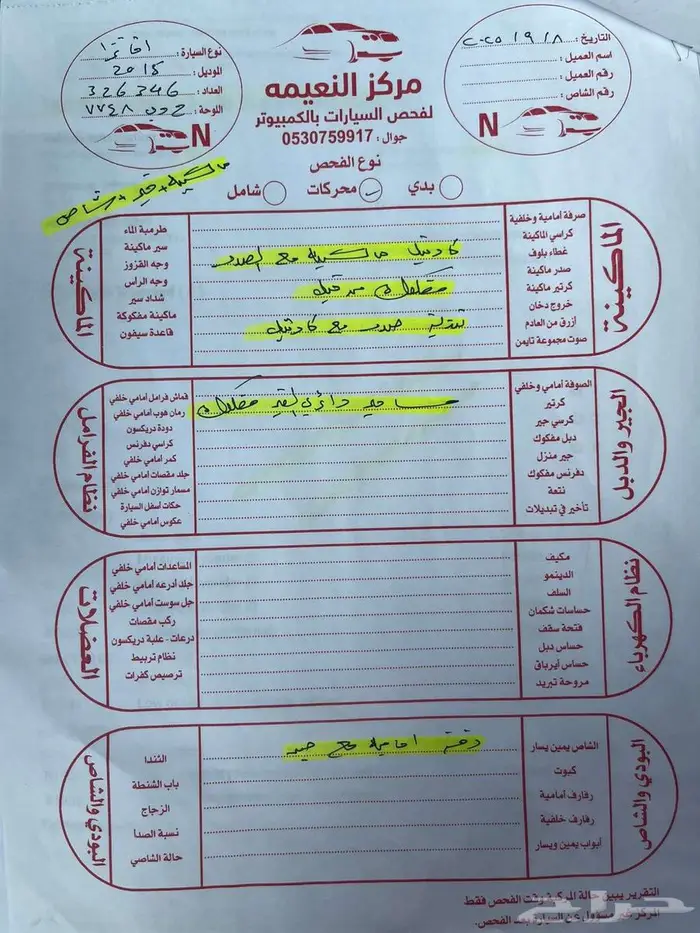 التاريخ: ٢٠٢٥/٩/٨
اسم العميل:
رقم العميل:
رقم الشاص:
N
مركز النعيمه
لفحص السيارات بالكمبيوتر
جوال: 0530759917
نوع السيارة:
الموديل: 2015
العداد: 326346
اللوحة: ٧٧٤٨
N
نوع الفحص
بدي
محركات
شامل
ماكينة + قير + شاص
الماكينة
صرفة أمامية وخلفية
كراسي الماكينة
غطاء بلوف
صدر ماكينة
كرتير ماكينة
خروج دخان
أزرق من العادم
صوت مجموعة تايمن
ماكينة مع الصدر
مفكوك من قبل
صدر مع
طرمبة الماء
سير ماكينة
وجه القزوز
وجه الراس
شداد سير
ماكينة مفكوكة
قاعدة سيفون
الماكينة
الجير والدبل
الصوفة أمامي وخلفي
كرتير
كرسي جير
دبل مفكوك
جير منزل
دفرنس مفكوك
نتعة
تأخير في تبديلات
القير مفكوك
قماش فرامل أمامي خلفي
رمان هوب أمامي خلفي
دودة دريكسون
كراسي دفرنس
كمر أمامي خلفي
جلد مقصات أمامي خلفي
مسمار توازن أمامي خلفي
حكات أسفل السيارة
عكوس أمامي خلفي
نظام الفرامل
نظام الكهرباء
مكيف
الدينمو
السلف
حساسات شكمان
فتحة سقف
حساس دبل
حساس أيرباق
مروحة تبريد
المساعدات أمامي خلفي
جلد أدرعه أمامي خلفي
جل سوست أمامي خلفي
ركب مقصات
درعات - علبة دريكسون
نظام تربيط
ترصيص كفرات
العضلات
البودي والشاص
الشاص يمين يسار
كبوت
رفارف أمامية
رفارف خلفية
أبواب يمين ويسار
دقة امامية
الثندا
باب الشنطة
الزجاج
نسبة الصدأ
حالة الشاصي
البودي والشاص
التقرير يبين حالة المركبة وقت الفحص فقط
المركز غير مسؤول عن السيارة بعد الفحص.
حراج